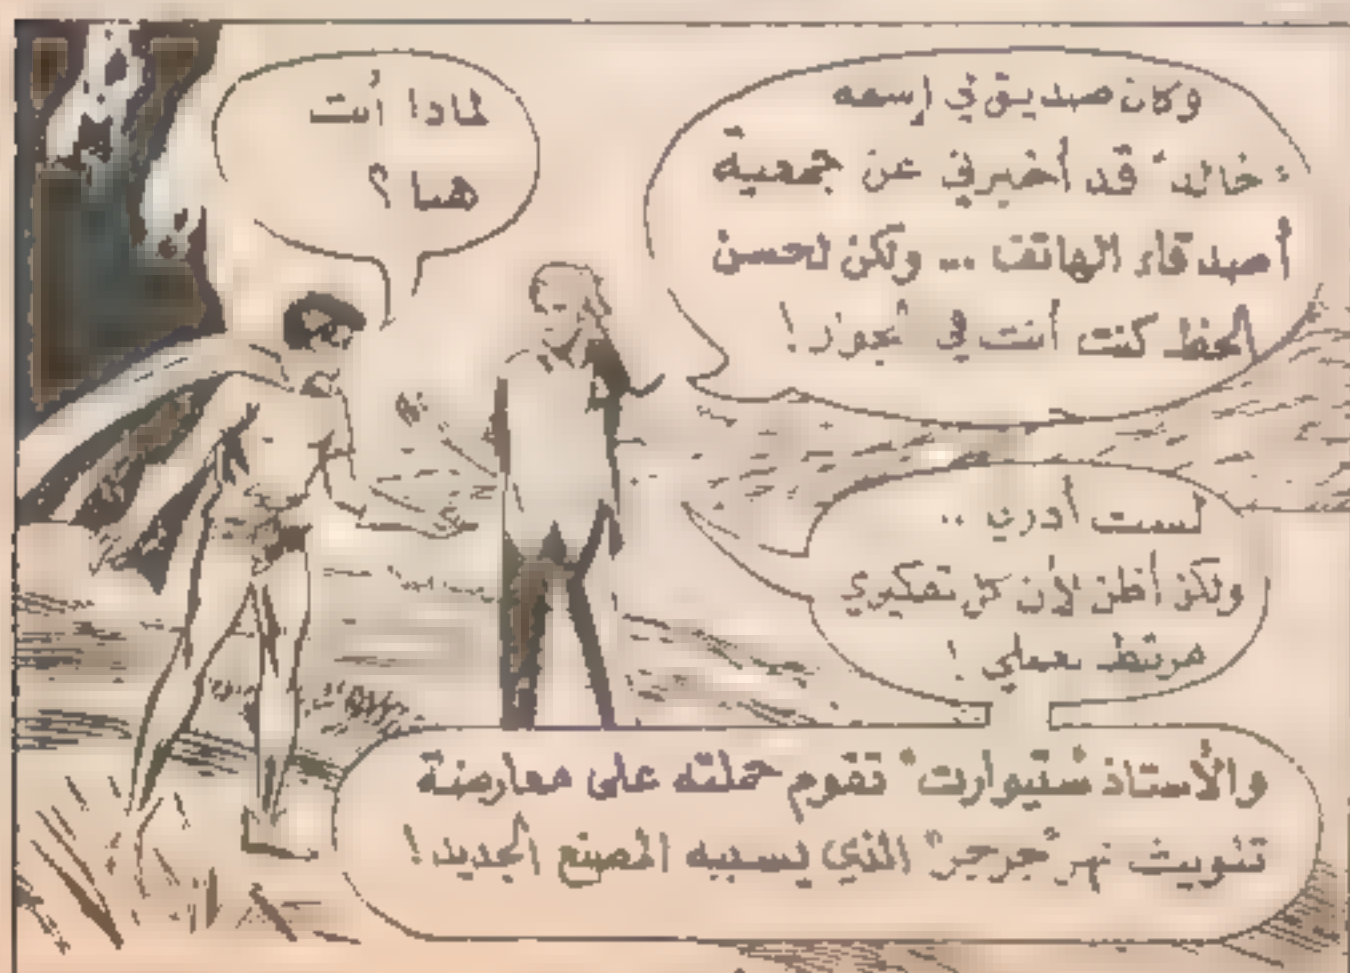 وكان صديق في إسمه
"خالد" قد أخبرني عن جمعية
أصدقاء الهاتف ... ولكن لحسن
الحظ كنت أنت في الجوار!
لماذا أنت
هنا ؟
لست أدري ..
ولكن أظن لأن كل تفكيري
مرتبط بعملي !
والأستاذ "ستيوارت" تقوم حملته على معارضة
تلويث نهر "جرجر" الذي يسببه المصنع الجديد!